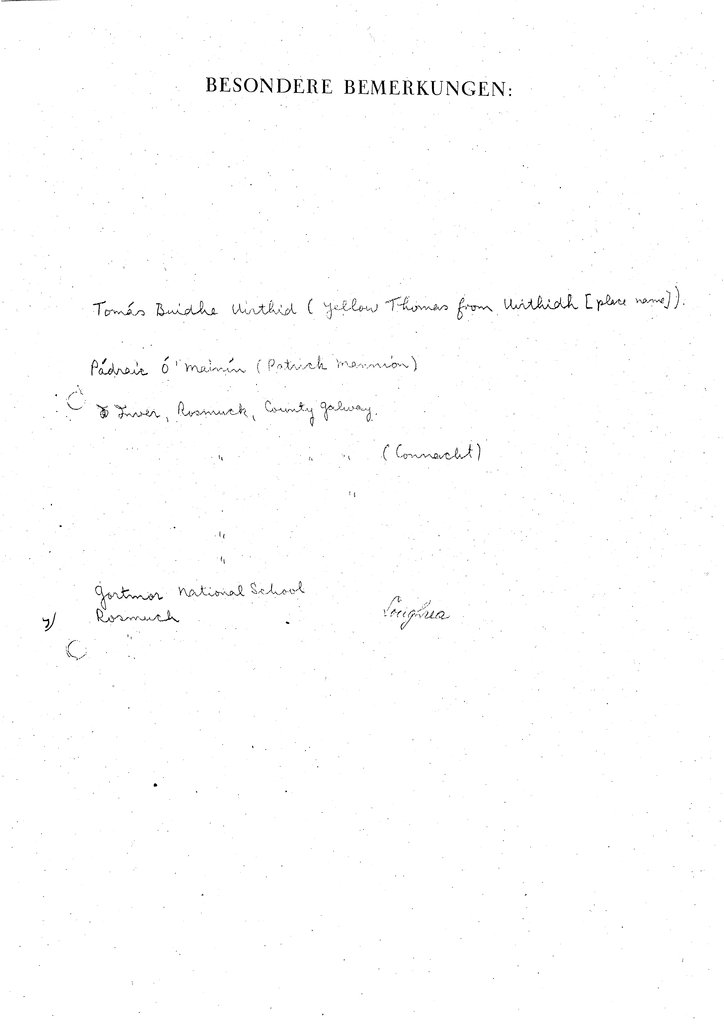 BESONDERE BEMERKUNGEN:
Tomás Buidhe Uirthid (Yellow Thomas from Uirthidh [place name]).
Pádraic Ó'Mainín (Patrick Mannion)
Inver, Rosmuck, County Galway.
" " " (Connacht)
"
"
"
Gortmor National School
Rosmuck Loughrea
"